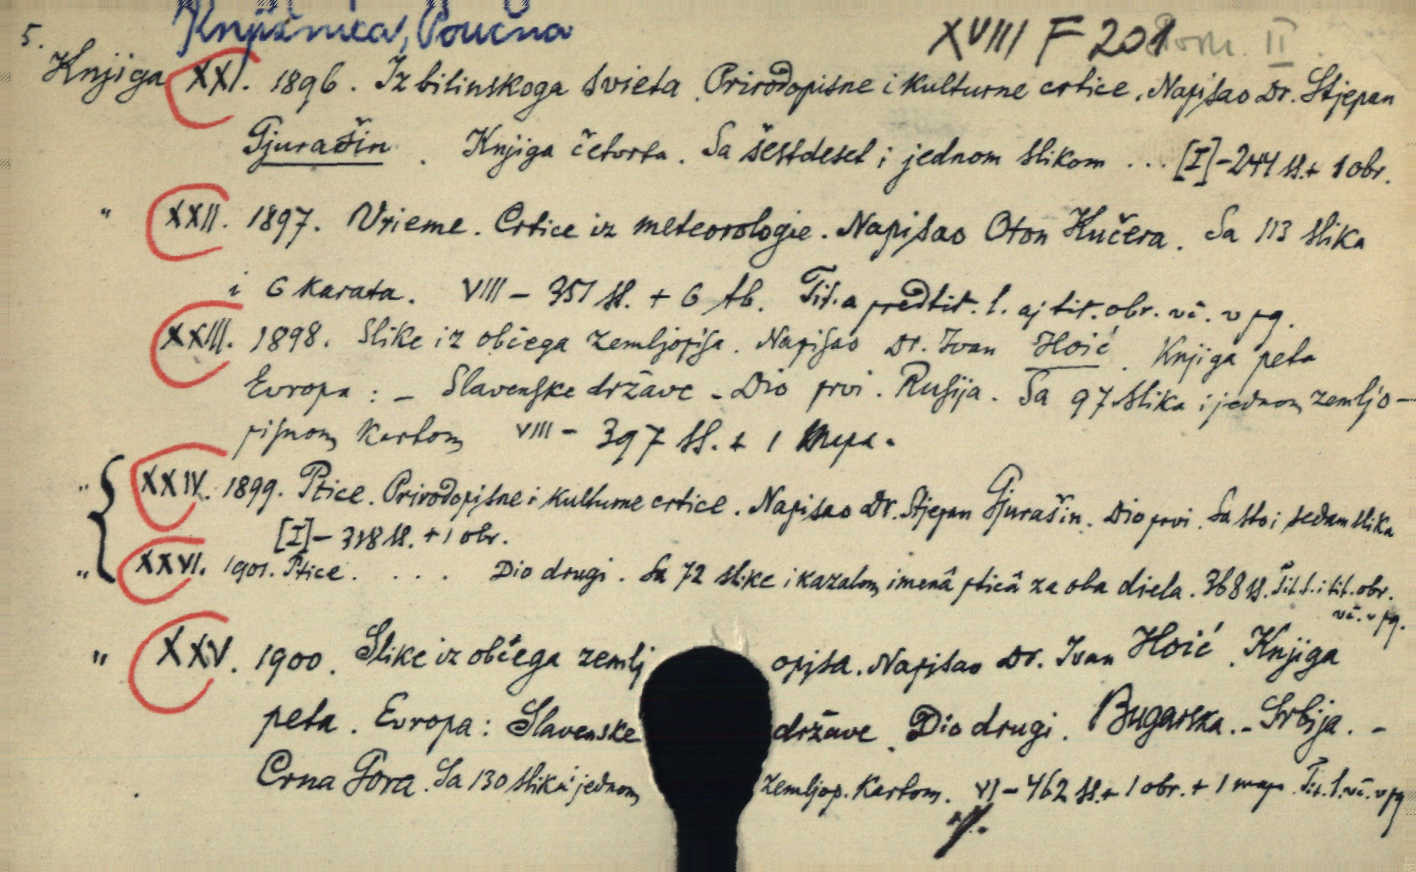 5. Knjižnica, Poučna XVIII F 201
Pom. II
Knjiga XXI. 1896. Iz bilinskoga svieta. Prirodopisne i kulturne crtice. Napisao Dr. Stjepan
Gjurašin. Knjiga četvrta. Sa šestdeset i jednom slikom ... [I]-244 ss. + 1 obr.
" XXII. 1897. Vrieme. Crtice iz meteorologie. Napisao Oton Kučera. Sa 113 slika
i 6 karata. VIII – 351 ss. + 6 tb. Tit. a predtit. l. aj tit. obr. vč. v pg.
XXIII. 1898. Slike iz obćega zemljopisa. Napisao Dr. Ivan Hoić. Knjiga peta
Evropa: – Slavenske države – Dio prvi. Rusija. Sa 97 slika i jednom zemljo–
pisnom kartom VIII – 397 ss. + 1 mapa.
" XXIV. 1899. Ptice. Prirodopisne i kulturne crtice. Napisao Dr. Stjepan Gjurašin. Dio prvi. Sa sto i sedam slika
[I] – 318 ss. + 1 obr.
" XXVI. 1901. Ptice. . . . . Dio drugi. Sa 72 slike i kazalom imenâ pticâ za oba diela. 368 ss. Tit. l. i tit. obr.
vč. v pg.
" XXV. 1900. Slike iz obćega zemljopisa. Napisao Dr. Ivan Hoić. Knjiga
peta. Evropa: Slavenske države. Dio drugi. Bugarska. – Srbija. –
Crna Gora. Sa 130 slika i jednom zemljop. kartom. VI – 462 ss. + 1 obr. + 1 map. Tit. l. vč. v pg